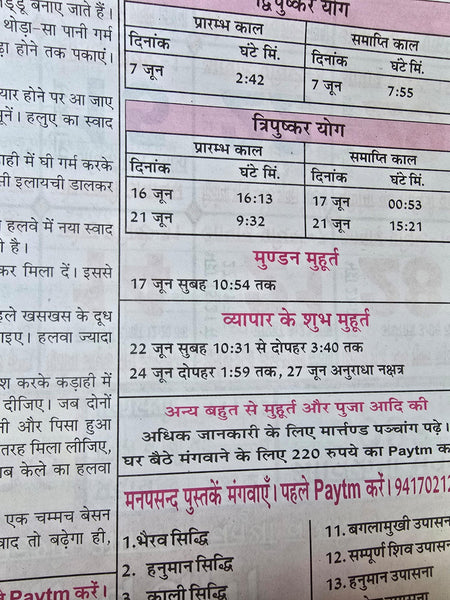 द्विपुष्कर योग
प्रारम्भ काल
समाप्ति काल
दिनांक घंटे मिं.
दिनांक घंटे मिं.
7 जून 2:42
7 जून 7:55
त्रिपुष्कर योग
प्रारम्भ काल
समाप्ति काल
दिनांक घंटे मिं.
दिनांक घंटे मिं.
16 जून 16:13
17 जून 00:53
21 जून 9:32
21 जून 15:21
मुण्डन मुहूर्त
17 जून सुबह 10:54 तक
व्यापार के शुभ मुहूर्त
22 जून सुबह 10:31 से दोपहर 3:40 तक
24 जून दोपहर 1:59 तक, 27 जून अनुराधा नक्षत्र
अन्य बहुत से मुहूर्त और पूजा आदि की
अधिक जानकारी के लिए मार्त्तण्ड पञ्चांग पढ़े।
घर बैठे मंगवाने के लिए 220 रुपये का Paytm क
मनपसन्द पुस्तकें मंगवाएँ। पहले Paytm करें। 9417021
1.भैरव सिद्धि
2. हनुमान सिद्धि
3. काली सिद्धि
11. बगलामुखी उपासन
12. सम्पूर्ण शिव उपास
13. हनुमान उपासना
बनाए जाते हैं।
थोड़ा-सा पानी गर्म
होने तक पकाएं।
यार होने पर आ जाए
हलुए का स्वाद
ही में घी गर्म करके
इलायची डालकर
हलवे में नया स्वाद
है।
कर मिला दें। इससे
हले खसखस के दूध
इए। हलवा ज्यादा
श करके कड़ाही में
दीजिए। जब दोनों
और पिसा हुआ
तरह मिला लीजिए,
ब केले का हलवा
एक चम्मच बेसन
वाद तो बढ़ेगा ही,
Paytm करें।